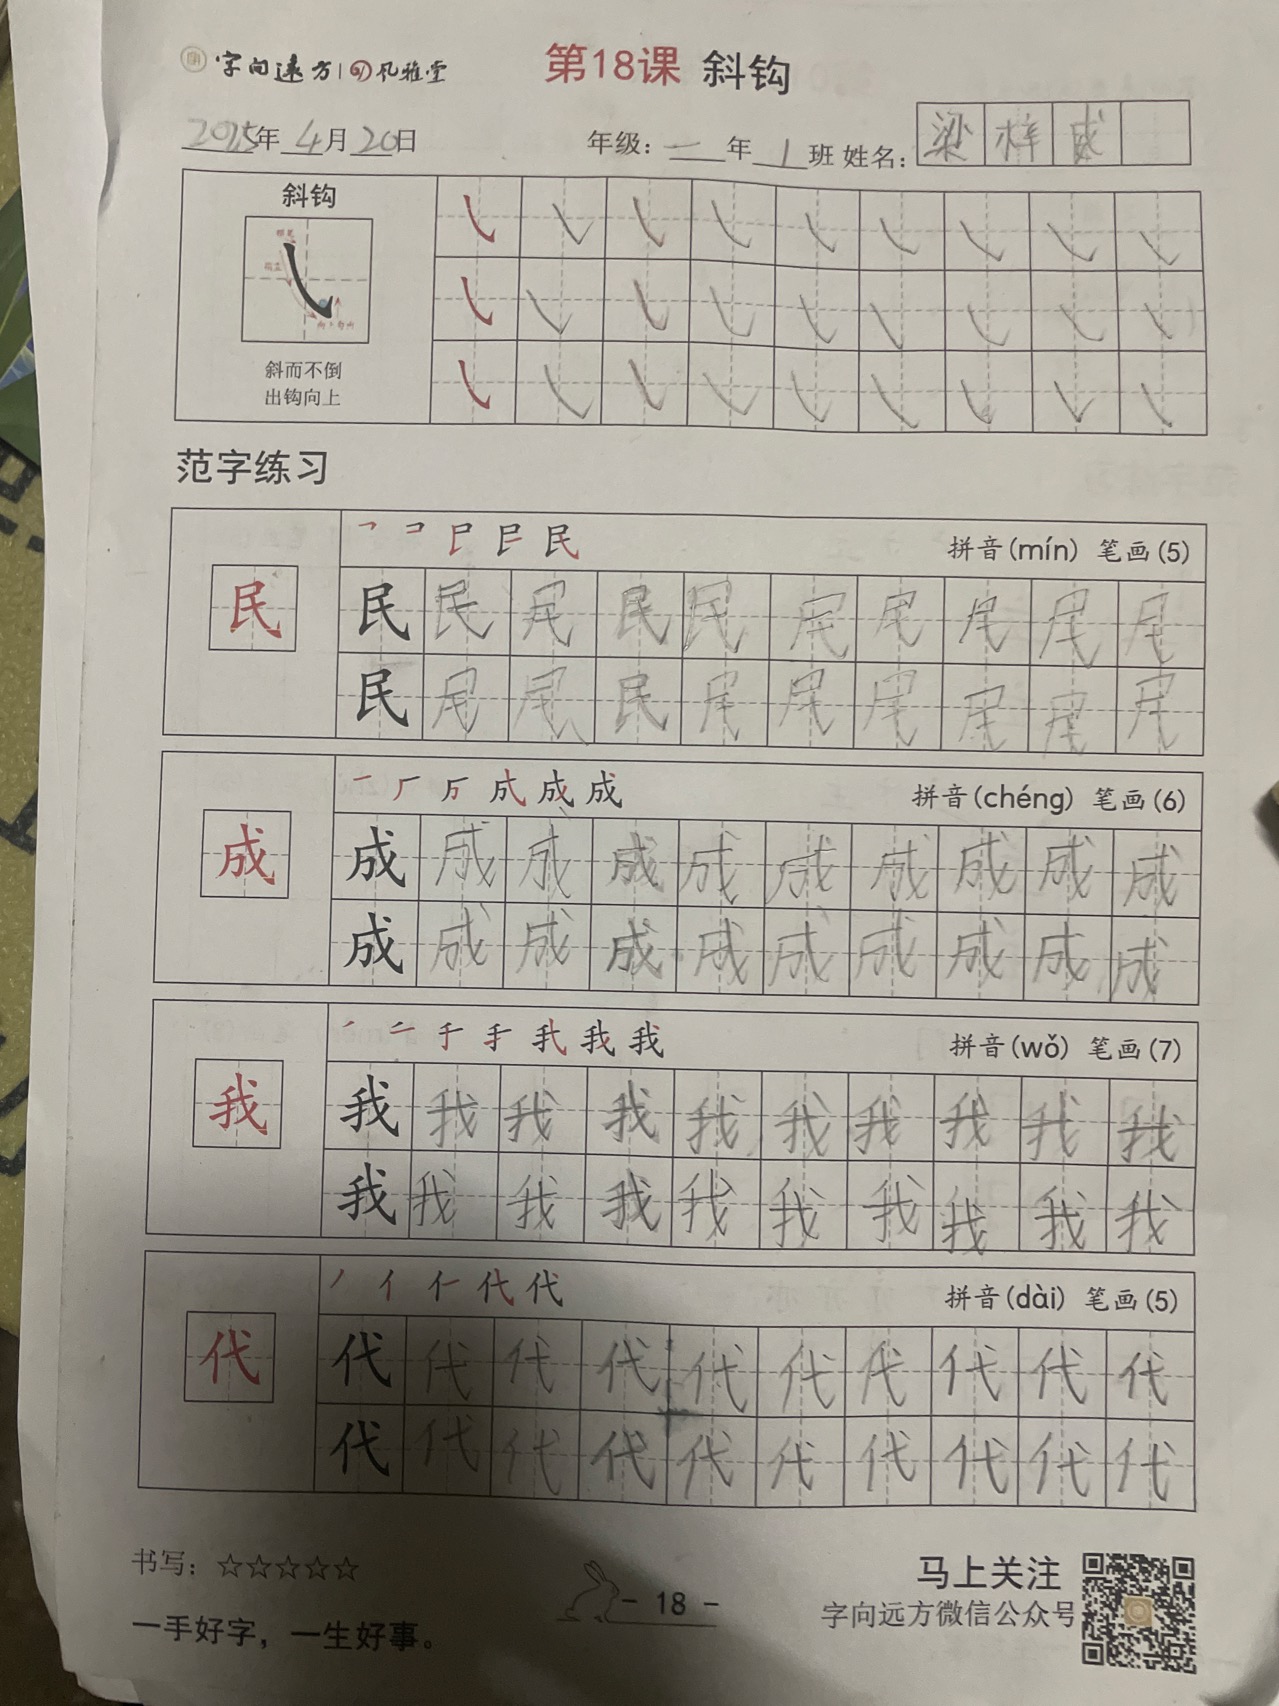 字向远方 | 风雅堂
第18课 斜钩
2025年 4月 20日 年级：一年 1班 姓名：梁梓成
斜钩
斜而不倒
出钩向上
范字练习
民 拼音(mín) 笔画(5)
民 民 民 民 民 民 民 民 民 民 民
民 民 民 民 民 民 民 民 民 民
成 拼音(chéng) 笔画(6)
成 成 成 成 成 成 成 成 成 成 成
成 成 成 成 成 成 成 成 成 成
我 拼音(wǒ) 笔画(7)
我 我 我 我 我 我 我 我 我 我 我
我 我 我 我 我 我 我 我 我 我
代 拼音(dài) 笔画(5)
代 代 代 代 代 代 代 代 代 代 代
代 代 代 代 代 代 代 代 代 代
书写：☆☆☆☆☆
一手好字，一生好事。
- 18 -
马上关注
字向远方微信公众号